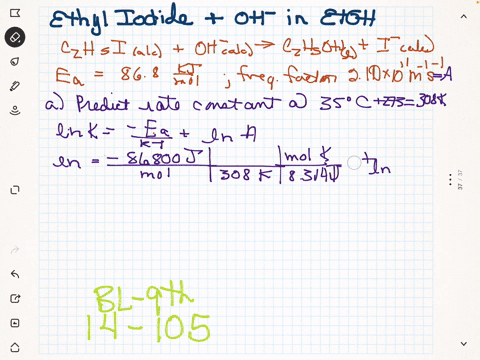 Ethyl Iodide + OH⁻ in EtOH
C₂H₅I(alc) + OH⁻(alc) → C₂H₅OH(g) + I⁻(alc)
Ea = 86.8 kJ/mol ; freq. factor 2.10 × 10¹¹ m⁻¹s⁻¹ = A
a) Predict rate constant a) 35°C + 273 = 308K
ln K = -Ea/KT + ln A
ln = -86800 J/mol | /308 K | mol K/8.314 J + ln
BL-9th
14-105
37 / 37